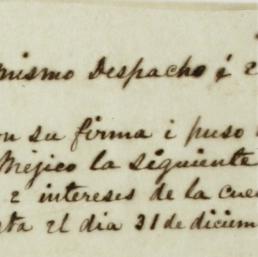 mismo Despacho i 2
su firma i puso
Mejico la siguiente
2 intereses de la cue
ta el dia 31 de diciem